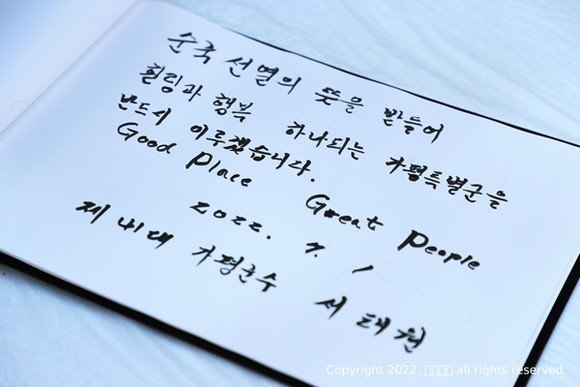 순국 선열의 뜻을 받들어
힐링과 행복 하나되는 가평특별군을
반드시 이루겠습니다.
Good Place Great People
2022. 7. 1
제41대 가평군수 서태원
Copyright 2022. all rights reserved.